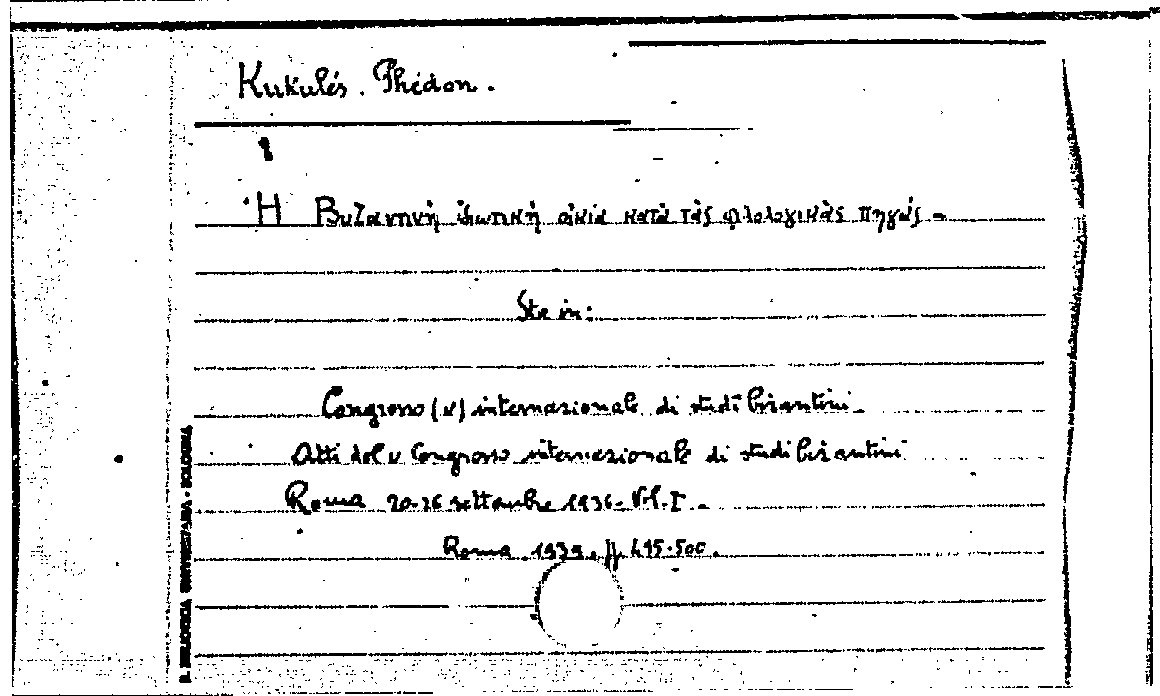 Kukulés. Phédon.
Ἡ Βυζαντινὴ ἰδιωτικὴ οἰκία κατὰ τὰς φιλολογικὰς πηγάς -
Sta in:
Congresso (V) internazionale di studi bizantini.
Atti del V Congresso internazionale di studi bizantini
Roma 20-26 settembre 1936 - Vol. I -
Roma 1939. pp. 495-500.